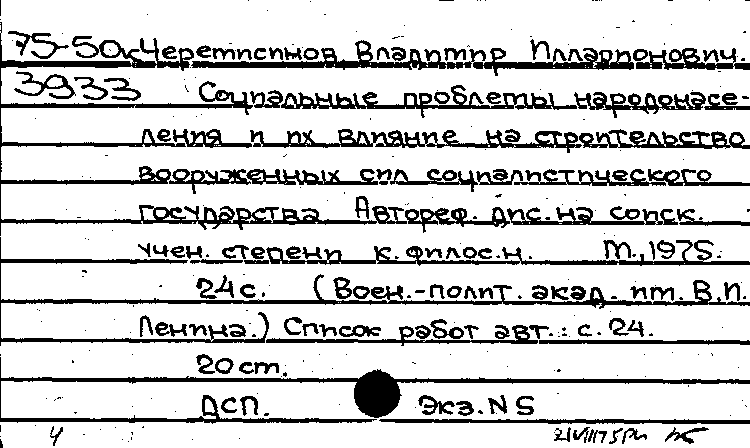 75-50к Черемисинов Владимир Илларионович.
3933 Социальные проблемы народонасе-
ления и их влияние на строительство
вооруженных сил социалистического
государства. Автореф. дис. на соиск.
учен. степени к. филос. н. М., 1975.
24 с. (Воен.-полит. акад. им. В.И.
Ленина.) Список работ авт.: с. 24.
20 ст.
ДСП. Экз. N 5
4